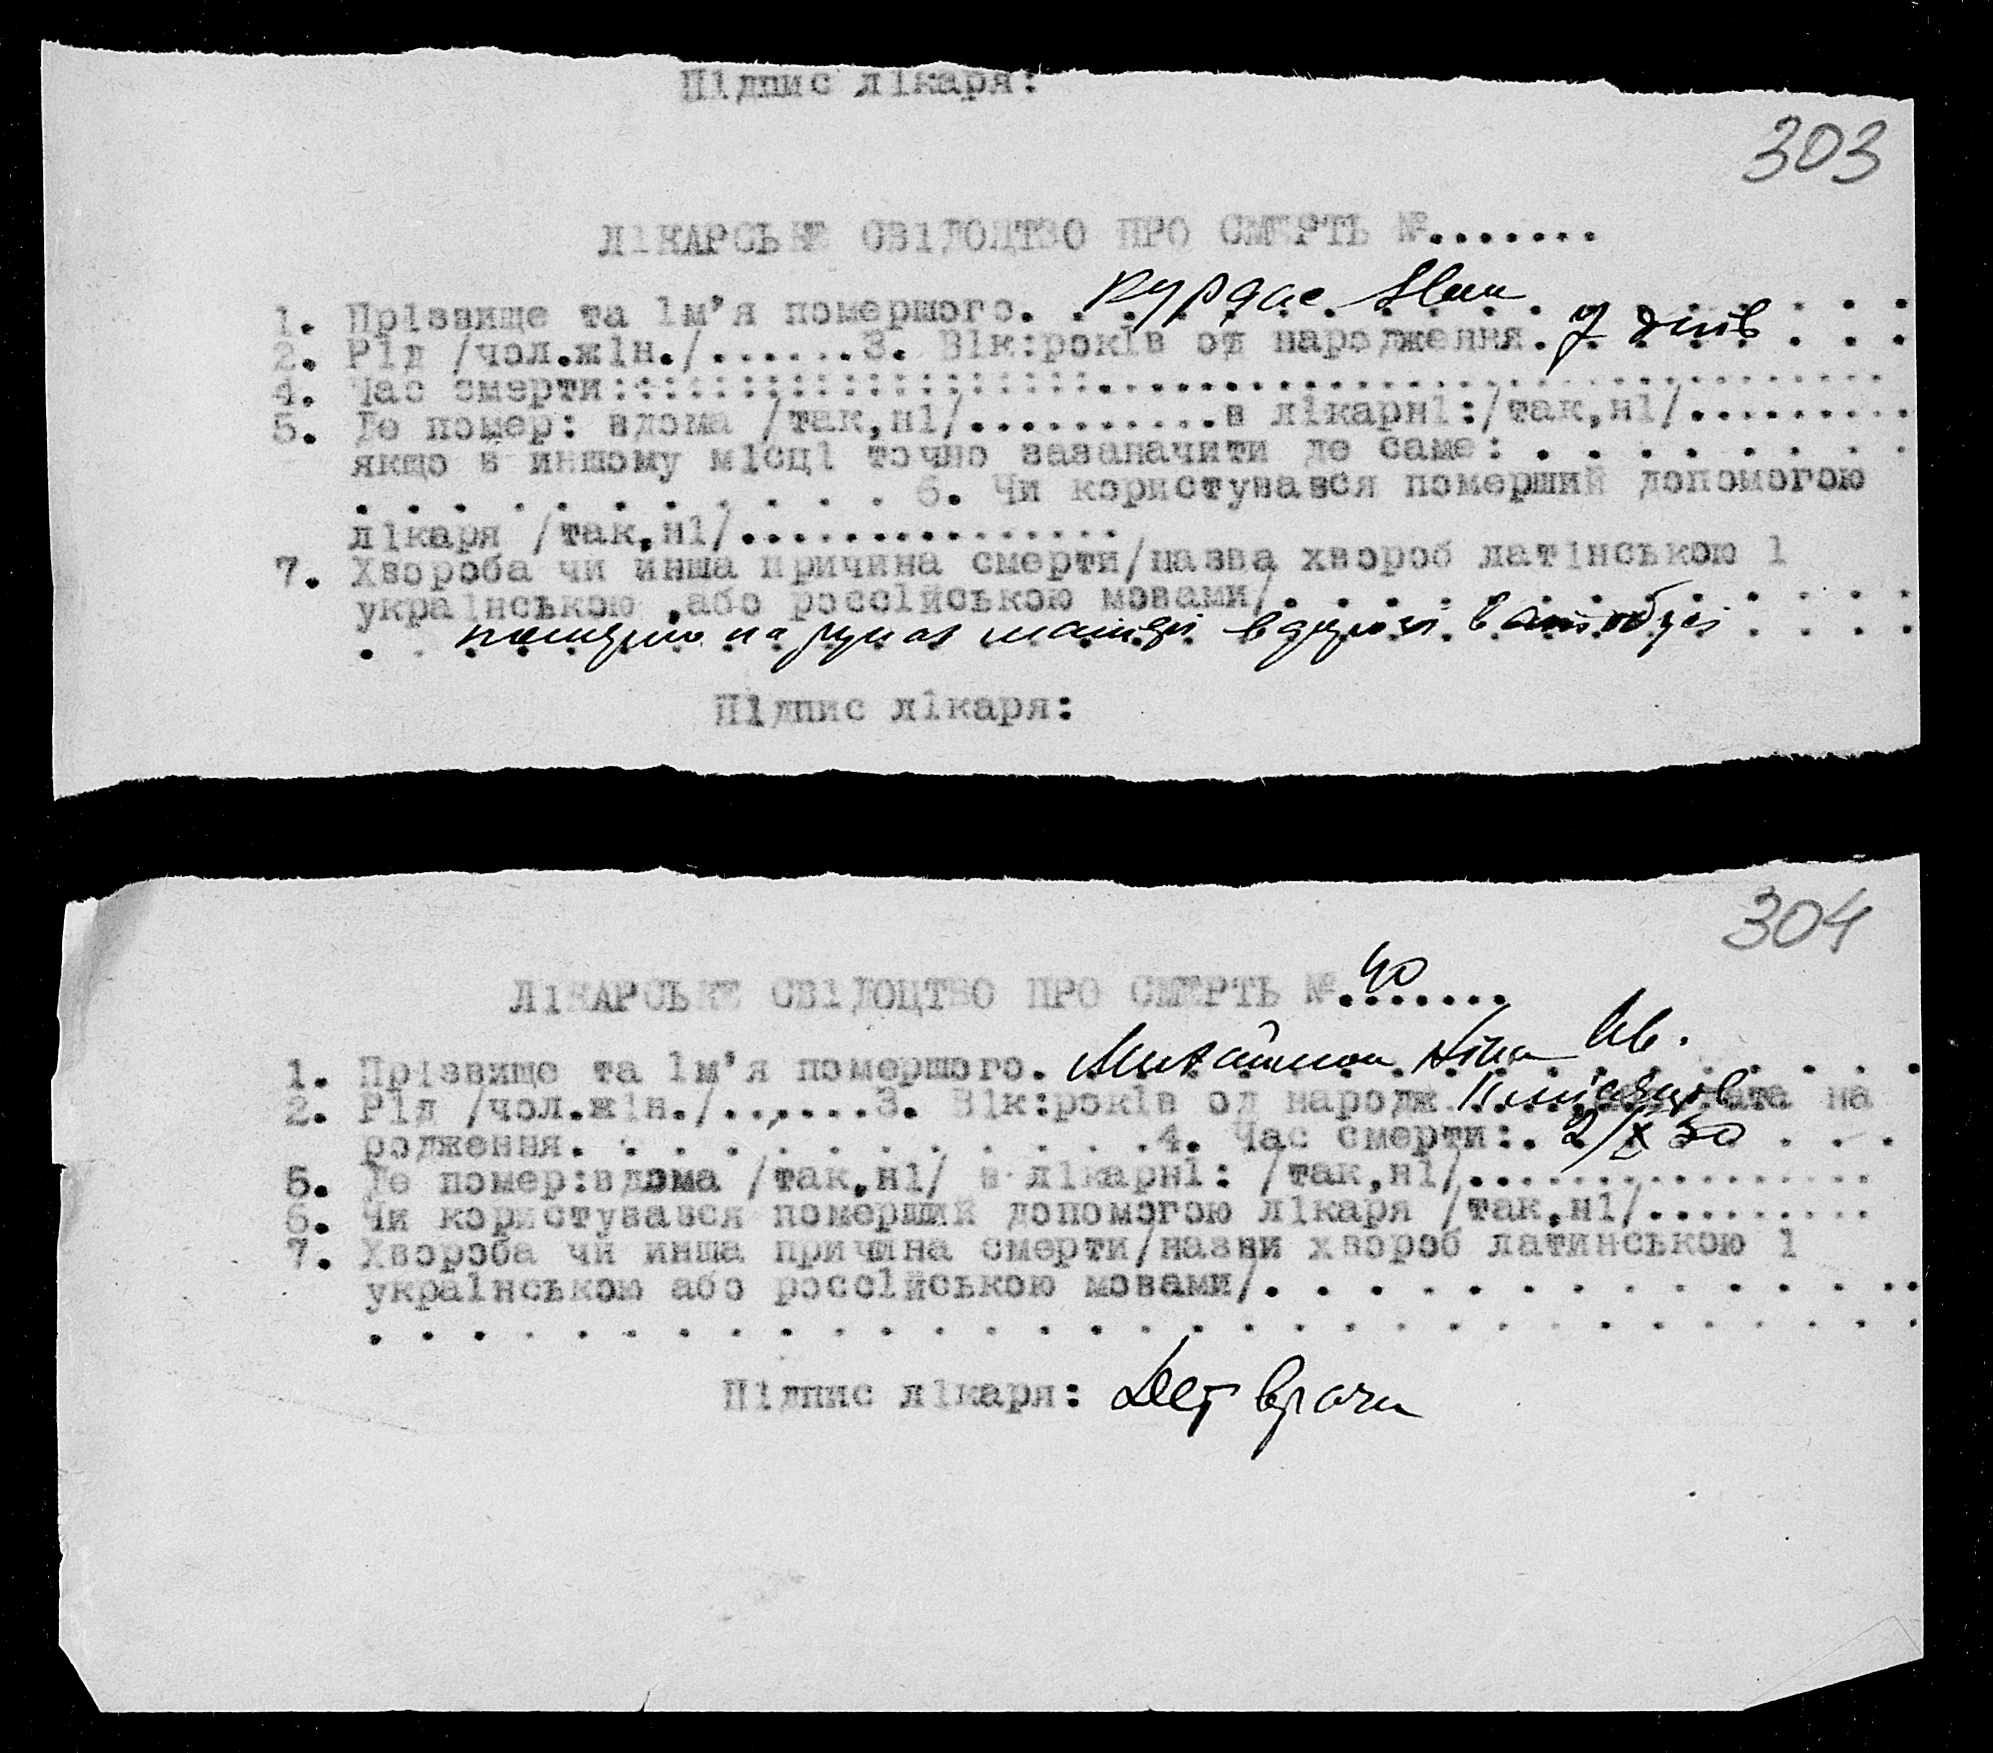 Підпис лікаря:
303
ЛІКАРСЬКЕ СВІДОЦТВО ПРО СМЕРТЬ №.......
1. Прізвище та ім'я помершого. Курдас
2. Рід /чол.жін./.......3. Вік:років од народження. 7 днів
4. Час смерти:
5. Де помер: вдома /так,ні/..........в лікарні:/так,ні/.........
якщо в иншому місці точно зазаначити де саме: . . . . . . . .
. . . . . . . . . . . 6. Чи користувався померший допомогою
лікаря /так,ні/...............
7. Хвороба чи инша причина смерти/назва хвороб латінською і
українською ,або россійською мовами/. . . . . . . . . . . . .
на руках матері в дорозі в автобусі
Підпис лікаря:
304
ЛІКАРСЬКЕ СВІДОЦТВО ПРО СМЕРТЬ № 40
1. Прізвище та ім'я помершого. Ніна Ив.
2. Рід /чол.жін./.......3. Вік:років од народж місяців дата на
родження. . . . . . . . . . . .4. Час смерти:. 2/X 50 . . .
5. Де помер:вдома /так,ні/ в лікарні: /так,ні/................
6. Чи користувався померший допомогою лікаря /так,ні/.........
7. Хвороба чи инша причина смерти/назви хвороб латинською і
українською або россійською мовами/. . . . . . . . . . . . . .
. . . . . . . . . . . . . . . . . . . . . . . . . . . . . .
Підпис лікаря: Дет врачи